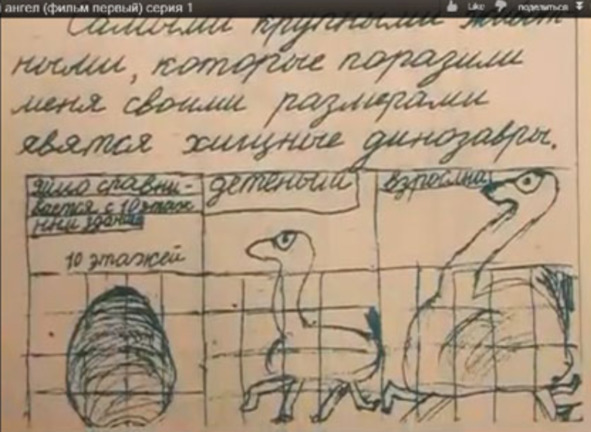 ангел (фильм первый) серия 1
Like поделиться
Самыми крупными живот
ными, которые поразили
меня своими размерами
явятся хищные динозавры.
яйцо сравни-
вается с 10 этаж
детеныш
10 этажей